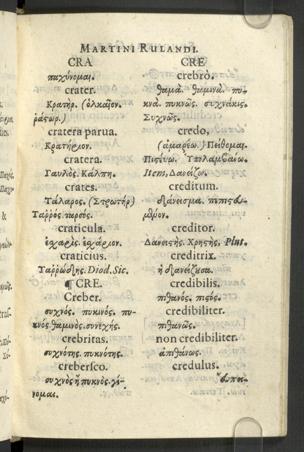 MARTINI RULANDI.
CRA
παχύνομαι.
crater.
Κρατὴρ. (ὁλκαῖον.
cratera parua.
Κρατήριον.
cratera.
Γαυλὸς. Κάλπη.
crates.
Τάλαρος. (Στρωτὴρ)
Ταῤῥὸς. ταρσὸς.
craticula.
ἐσχαρὶς. ἐσχάριον.
craticius.
Ταῤῥώδης. Diod. Sic.
¶ CRE.
Creber.
συχνὸς. πυκινὸς. πυ-
κνὸς. θαμινὸς. συνεχής.
crebritas.
συχνότης. πυκνότης.
crebersco.
συχνὸς ἢ πυκνὸς γί-
νομαι.
CRE
crebrò.
θαμὰ. θαμινὰ. πυ-
κνὰ. πυκνῶς. συχνάκις.
Συχνῶς.
credo,
Πείθομαι.
Πιστεύω. Ὑπολαμβάνω.
Item, Δανείζω.
creditum.
δάνεισμα.
creditor.
Δανειστὴς. Χρήστης. Plut.
creditrix.
ἡ δανείζουσα.
credibilis.
πιθανὸς. πιστὸς.
credibiliter.
πιθανῶς.
non credibiliter.
ἀπιθάνως.
credulus.